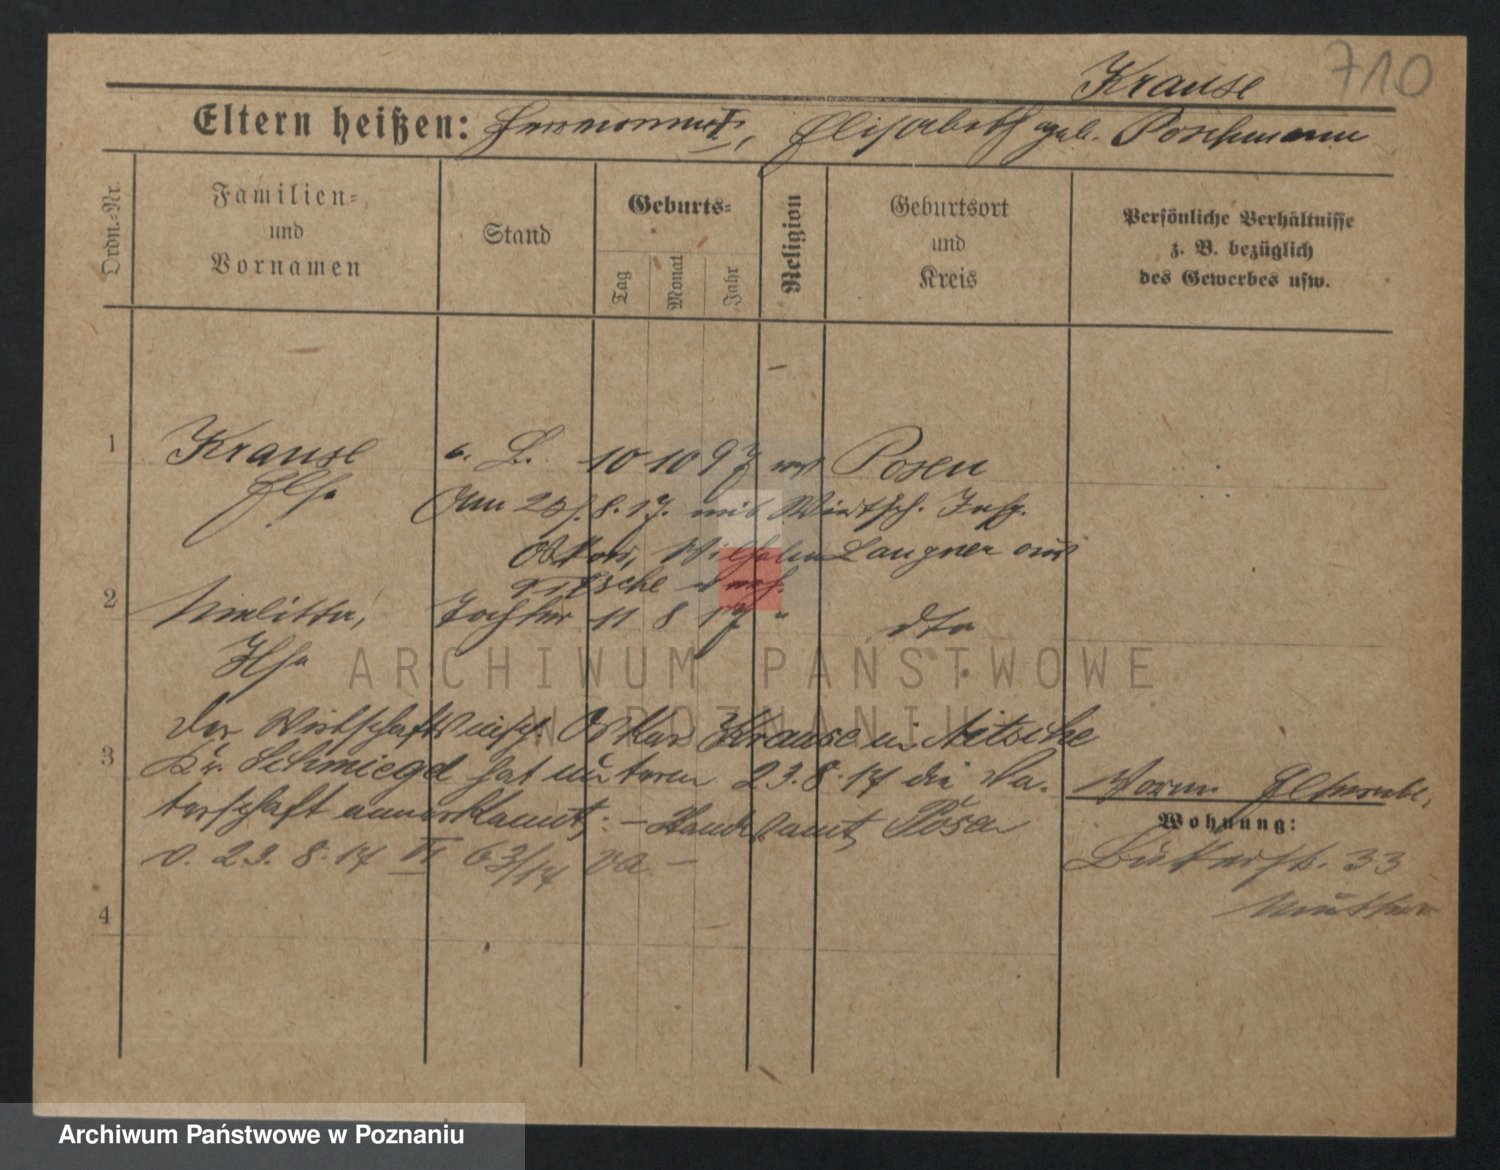 710
Krause
Eltern heißen: Hermann I, Elisabeth geb. Poschmann
Ordn.=Nr.
Familien=
und
Vornamen
Stand
Geburts=
Tag
Monat
Jahr
Religion
Geburtsort
und
Kreis
Persönliche Verhältnisse
z. B. bezüglich
des Gewerbes usw.
1
Krause
Else
o. B. 10 10 97 Posen
Am 8. 17. mit Wirtsch. Insp.
Oskar, Wilhelm Langner aus
2
Melitta, Tochter 11 8 17 " dto
Ilse
3
Der Wirtschaftsinsp. Oskar Krause in Nitsche
Kr. Schmiegel hat unterm 23. 8. 17 die Va-
terschaft anerkannt. - Standesamt Posen
v. 23. 8. 17 VI 63/17 va -
4
Vorm.
Wohnung:
Bukerstr. 33
Mutter
ARCHIWUM PAŃSTWOWE
W POZNANIU
Archiwum Państwowe w Poznaniu